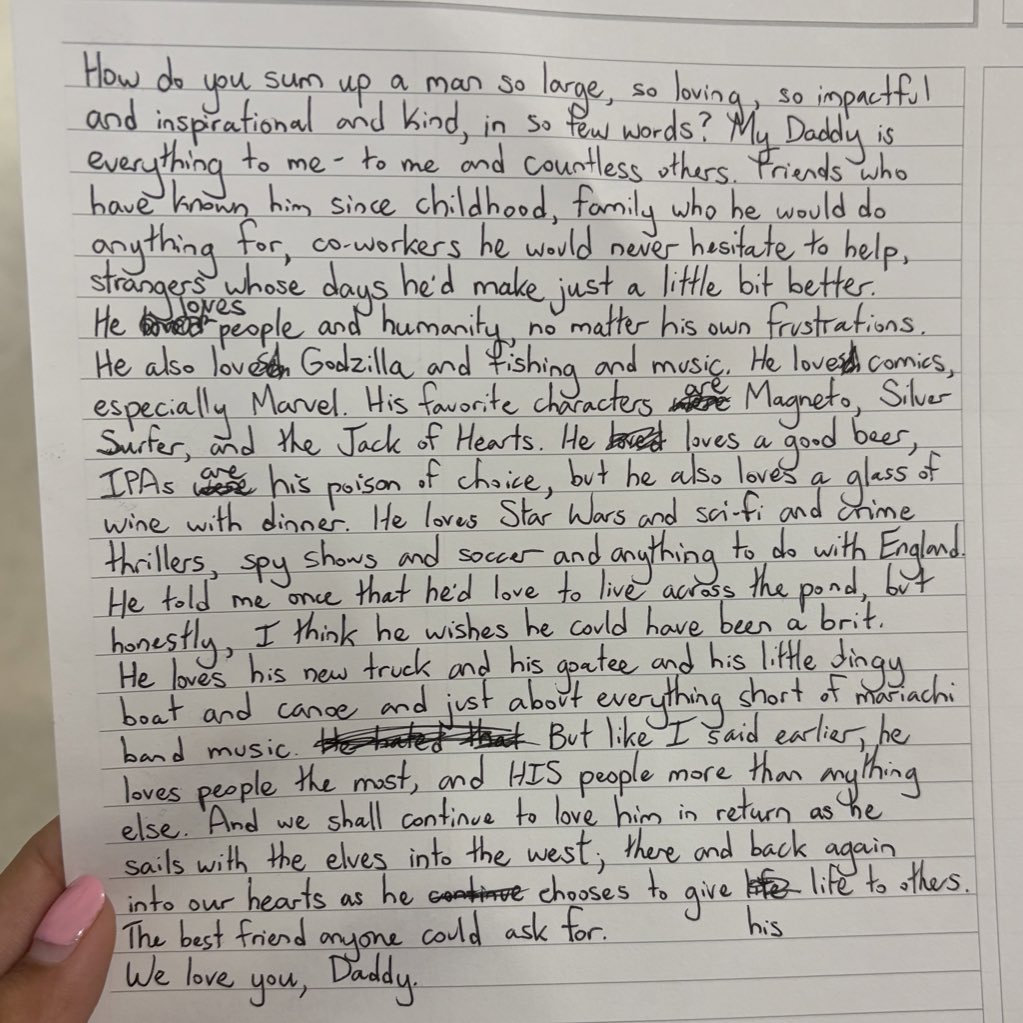 How do you sum up a man so large, so loving, so impactful
and inspirational and kind, in so few words? My Daddy is
everything to me - to me and countless others. Friends who
have known him since childhood, family who he would do
anything for, co-workers he would never hesitate to help,
strangers whose days he'd make just a little bit better.
He loves people and humanity, no matter his own frustrations.
He also loves Godzilla and fishing and music. He loves comics,
especially Marvel. His favorite characters are Magneto, Silver
Surfer, and the Jack of Hearts. He loves a good beer,
IPAs are his poison of choice, but he also loves a glass of
wine with dinner. He loves Star Wars and sci-fi and crime
thrillers, spy shows and soccer and anything to do with England.
He told me once that he'd love to live across the pond, but
honestly, I think he wishes he could have been a brit.
He loves his new truck and his goatee and his little dingy
boat and canoe and just about everything short of mariachi
band music. He hated that But like I said earlier, he
loves people the most, and HIS people more than anything
else. And we shall continue to love him in return as he
sails with the elves into the west; there and back again
into our hearts as he continue chooses to give life life to others.
The best friend anyone could ask for. his
We love you, Daddy.